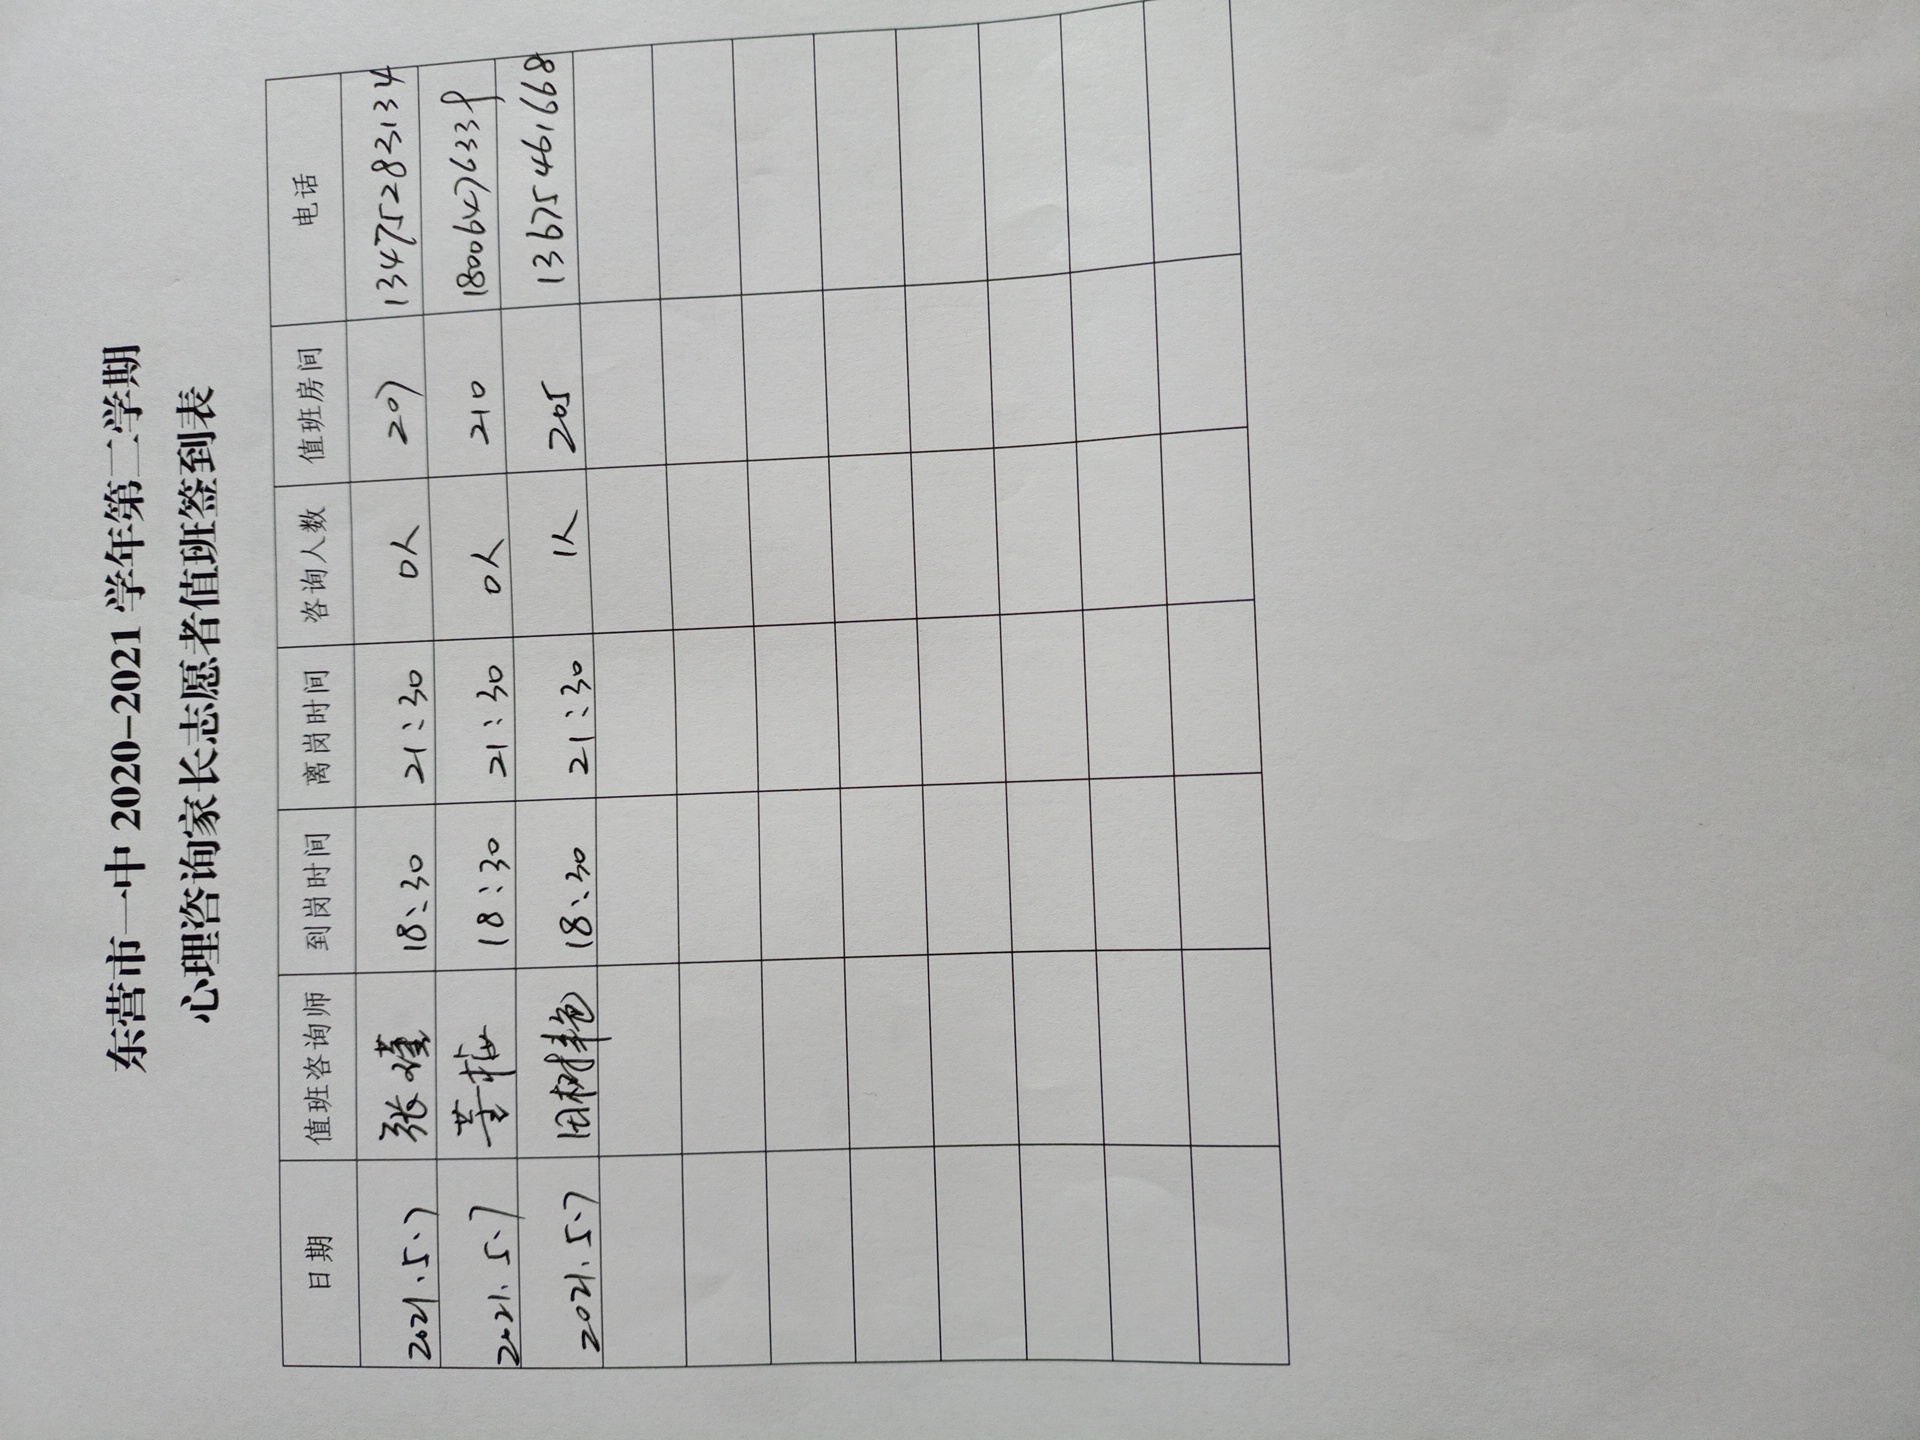 东营市一中 2020-2021 学年第二学期
心理咨询家长志愿者值班签到表
日期 值班咨询师 到岗时间 离岗时间 咨询人数 值班房间 电话
2021.5.7 张瑾 18:30 21:30 0人 207 13475283134
2021.5.7 董梅 18:30 21:30 0人 210 18006476339
2021.5.7 田树艳 18:30 21:30 1人 205 13675461668